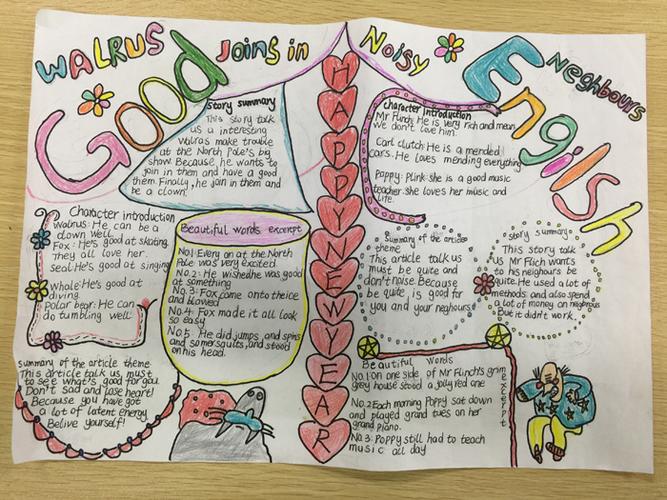 WALRUS Joins in
Good
Story summary
This story talk
us a interesting
walras make trouble
at the North Pole's big
show. Because, he wants to
join in them and have a good
them. Finally, he join in them and
be a clown.
Character introduction
Walrus: He can be a
clown well.
Fox: He's good at skating.
They all love her.
seal: He's good at singing
whale: He's good at
diving.
Polar bear: He can
do tumbling well
Beautiful words excerpt
No.1: Every on at the North
Pole was very excited.
No.2: He wishedhe was good
at something
No.3: Fox came ontotheice
and bloved
No.4: Fox made it all look
so easy
No.5: He did jumps, and spins
and somersquits, and stood
on his head.
Summary of the article theme
This article talk us, must
to see what's good for you
Don't sad and lose heart!
Because you have got
a lot of latent energy
Belive yourself!
HAPPYNEWYEAR
Noisy Neighbours
English
Character introduction
Mr Flinch: He is very rich and mean
we don't love him.
Carl clutch: He is a mended
cars. He loves mending everything
Poppy: Plink she is a good music
teacher. she loves her music and
life.
Summary of the articles
theme
This article talk us
must be quite and
don't noise. Because
be quite, is good for
you and your neghours
story summary
This story talk
us Mr Flich wants
to his neighours be
quite. He used a lot of
methods and also spend
a lot of money on neighrous
But it didn't work.
Beautiful words
excerpt
No.1: On one side of Mr Flinch's grim
grey house stood a jolly red one
No.2: Each morning Poppy sat down
and played grand tues on her
grand piano.
No.3: Poppy still had to teach
music all day